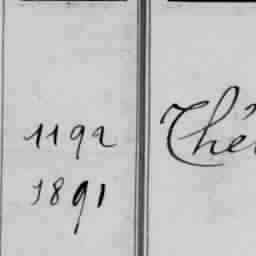 1192
1891
Thé